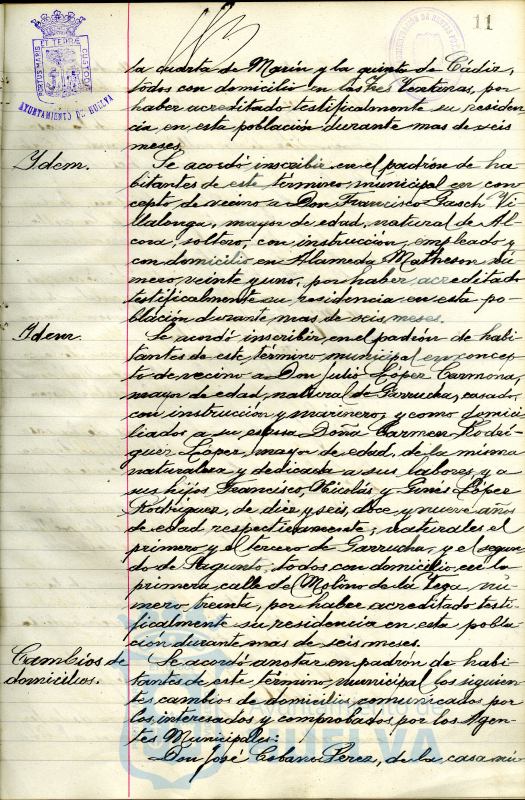 11
PORTUS MARIS ET TERRAE CUSTODIA
AYUNTAMIENTO DE HUELVA
la cuarta de Marín y la quinta de Cádiz,
todos con domicilio en las tres Ventanas, por
haber acreditado testificalmente su residen-
cia en esta población durante mas de seis
meses.
Idem. Se acordó inscribir en el padrón de ha-
bitantes de este término municipal en con-
cepto de vecino a Don Francisco Gasch Vi-
llalonga, mayor de edad, natural de Al-
cora, soltero, con instrucción, empleado y
con domicilio en Alameda Matheson nú-
mero veinte y uno, por haber acreditado
testificalmente su residencia en esta po-
blación durante mas de seis meses.
Idem. Se acordó inscribir en el padrón de habi-
tantes de este término municipal en concep-
to de vecino a Don Julio López Carmona,
mayor de edad, natural de Garrucha, casado,
con instrucción y marinero, y como domici-
liados a su esposa Doña Carmen Rodrí-
guez López, mayor de edad, de la misma
naturaleza y dedicada a sus labores, y a
sus hijos Francisco, Nicolás y Ginés López
Rodríguez, de diez y seis, doce y nueve años
de edad respectivamente, naturales el
primero y el tercero de Garrucha, y el segun-
do de Sagunto, todos con domicilio en la
primera calle de Molino de la Vega nú-
mero treinta, por haber acreditado testi-
ficalmente su residencia en esta pobla-
ción durante mas de seis meses.
Cambios de Se acordó anotar en padrón de habi-
domicilios. tantes de este término municipal los siguien-
tes cambios de domicilio comunicados por
los interesados y comprobados por los Agen-
tes Municipales:
Don José Cobano Perez, de la casa nú-
Ayuntamiento de
HUELVA